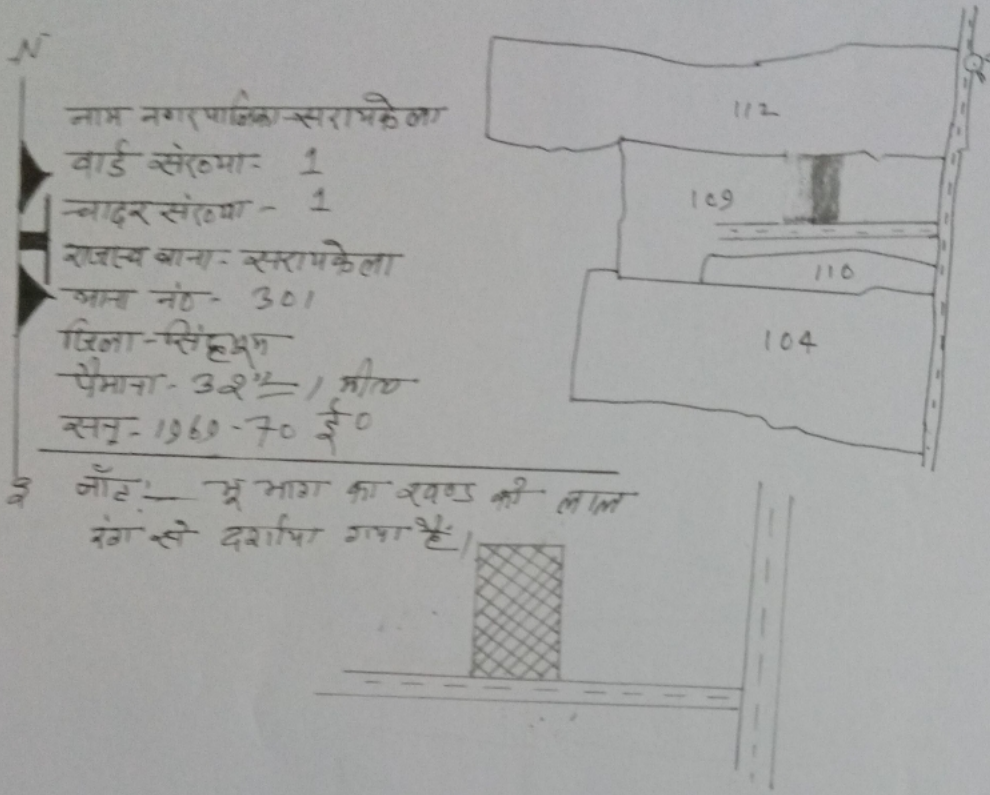 N
नाम नगरपालिका-सरायकेला
वार्ड संख्या- 1
चादर संख्या - 1
राजस्व थाना- सरायकेला
थाना नं०- 301
जिला-सिंहभूम
पैमाना- 32" = 1 मील
सन्- 1969-70 ई०
नोट:— भू भाग का खण्ड को लाल
रंग से दर्शाया गया है।
112
109
110
104